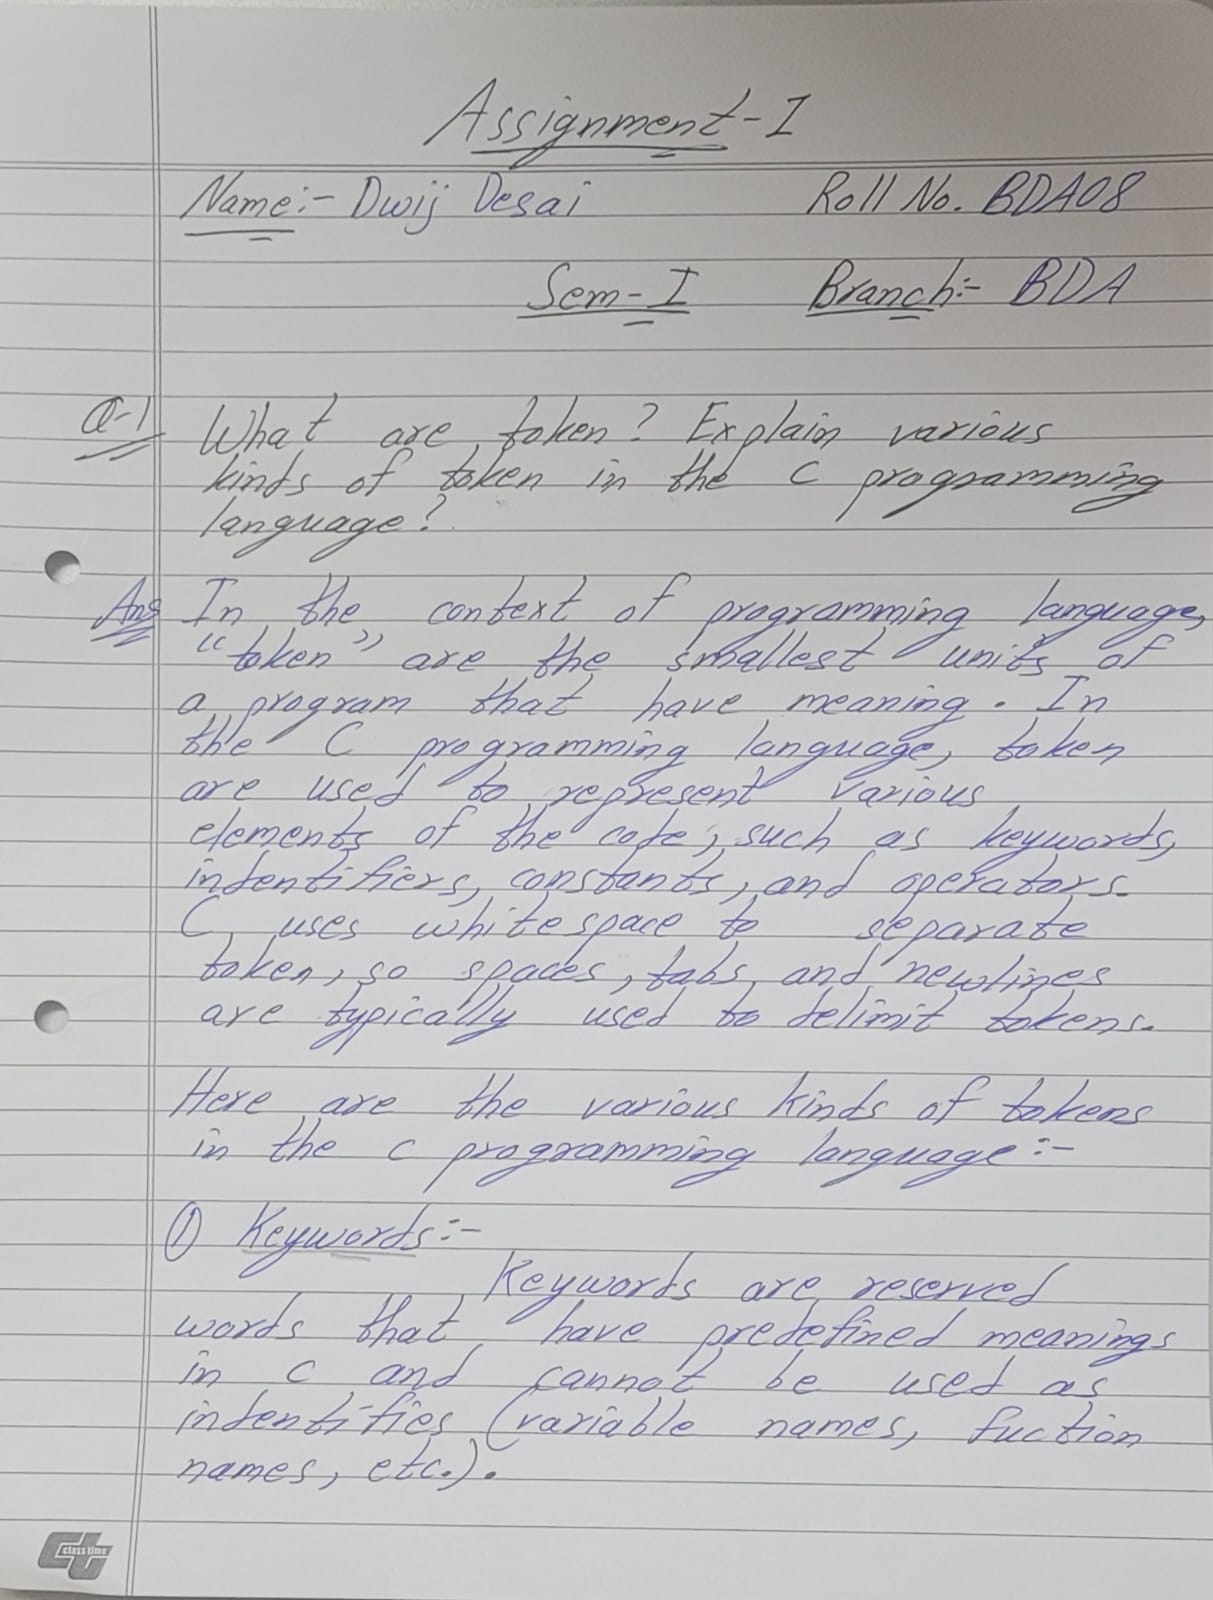 Assignment-I
Name:- Dwij Desai Roll No. BDA08
Sem-I Branch:- BDA
Q-1 What are token? Explain various
kinds of token in the C programming
language?
Ans In the context of programming language,
"token" are the smallest units of
a program that have meaning. In
the C programming language, token
are used to represent various
elements of the code, such as keywords,
indentifiers, constants, and operators.
C uses whitespace to separate
token, so spaces, tabs, and newlines
are typically used to delimit tokens.
Here are the various kinds of tokens
in the c programming language:-
① Keywords:-
Keywords are reserved
words that have predefined meanings
in c and cannot be used as
indentifies (variable names, fuction
names, etc.).
ct
class time